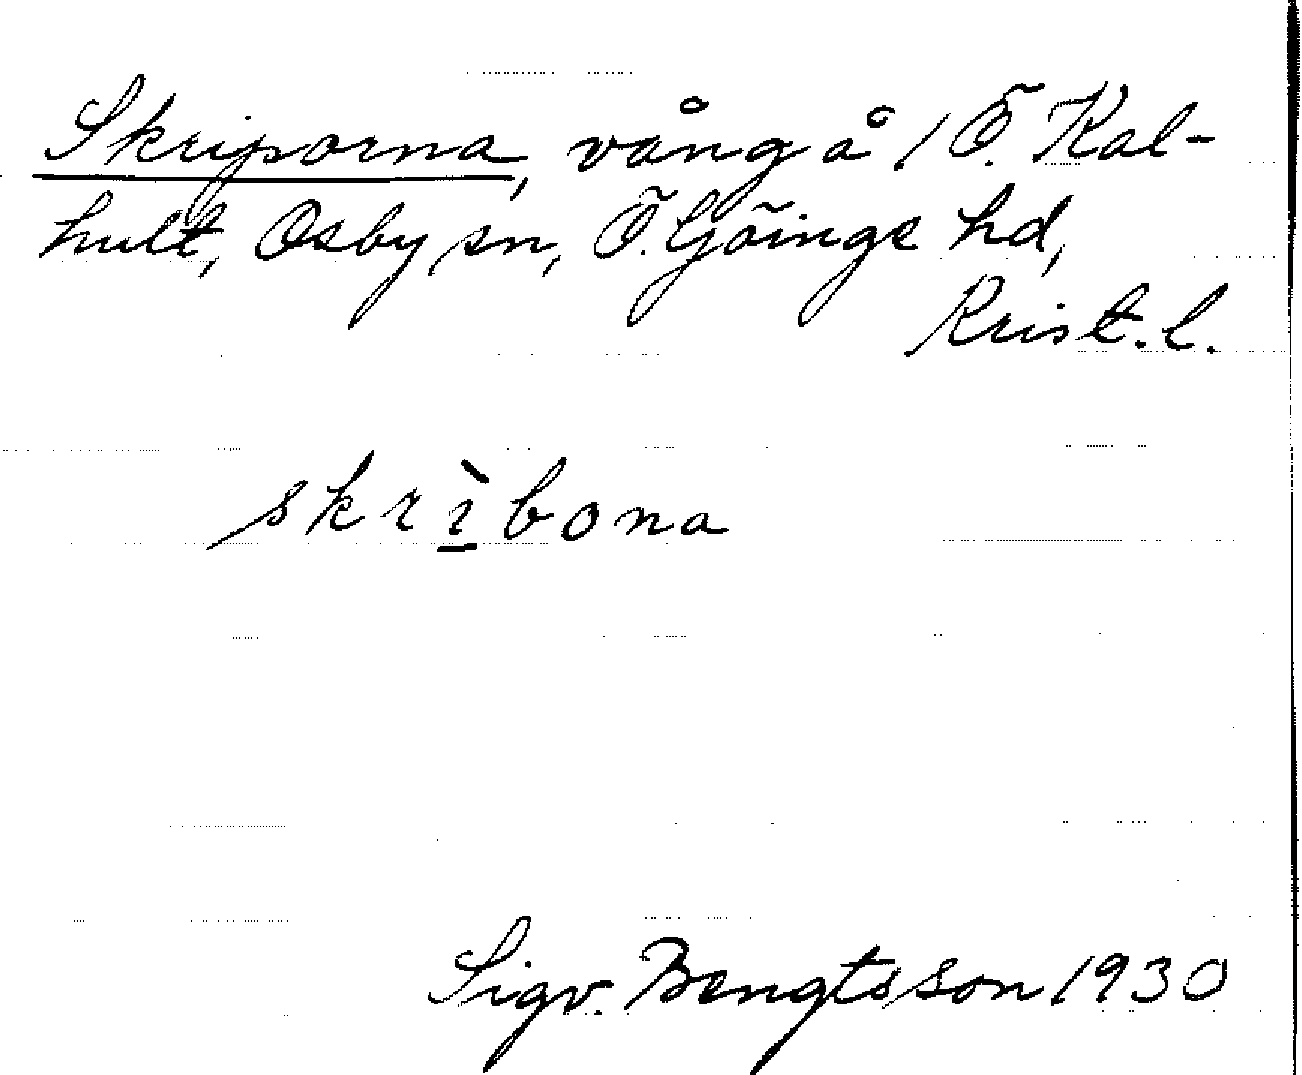 Skriporna, vång å 1 Ö. Kal-
hult, Osby sn, Ö. Göinge hd,
Krist. l.
skrìbona
Sigv. Bengtsson 1930